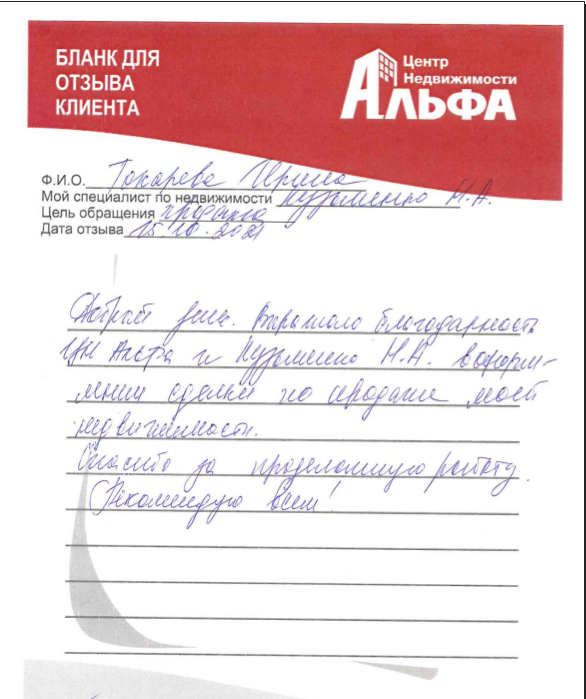 БЛАНК ДЛЯ
ОТЗЫВА
КЛИЕНТА
Центр
Недвижимости
АЛЬФА
Ф.И.О. Токарева Ирина
Мой специалист по недвижимости Кузьменко Н.А.
Цель обращения продажа
Дата отзыва 15.10.2021
Добрый день. Выражаю благодарность
ЦН Альфа и Кузьменко Н.А. в оформ-
лении сделки по продаже моей
недвижимости.
Спасибо за проделанную работу.
Рекомендую всем!